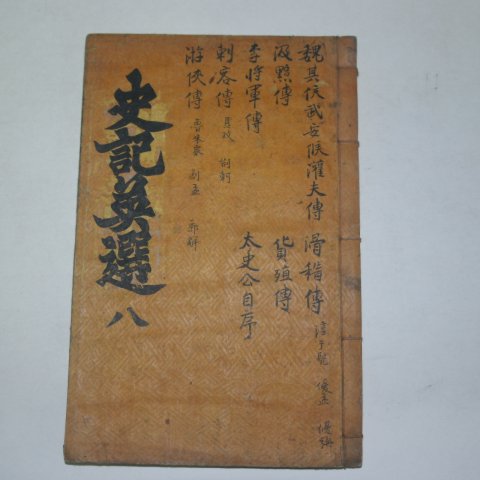 史記英選 八
魏其侯武安侯灌夫傳
汲黯傳
李將軍傳
刺客傳 聶政 荊軻
游俠傳 魯朱家 劇孟 郭解
滑稽傳 淳于髡 優孟 優旃
貨殖傳
太史公自序